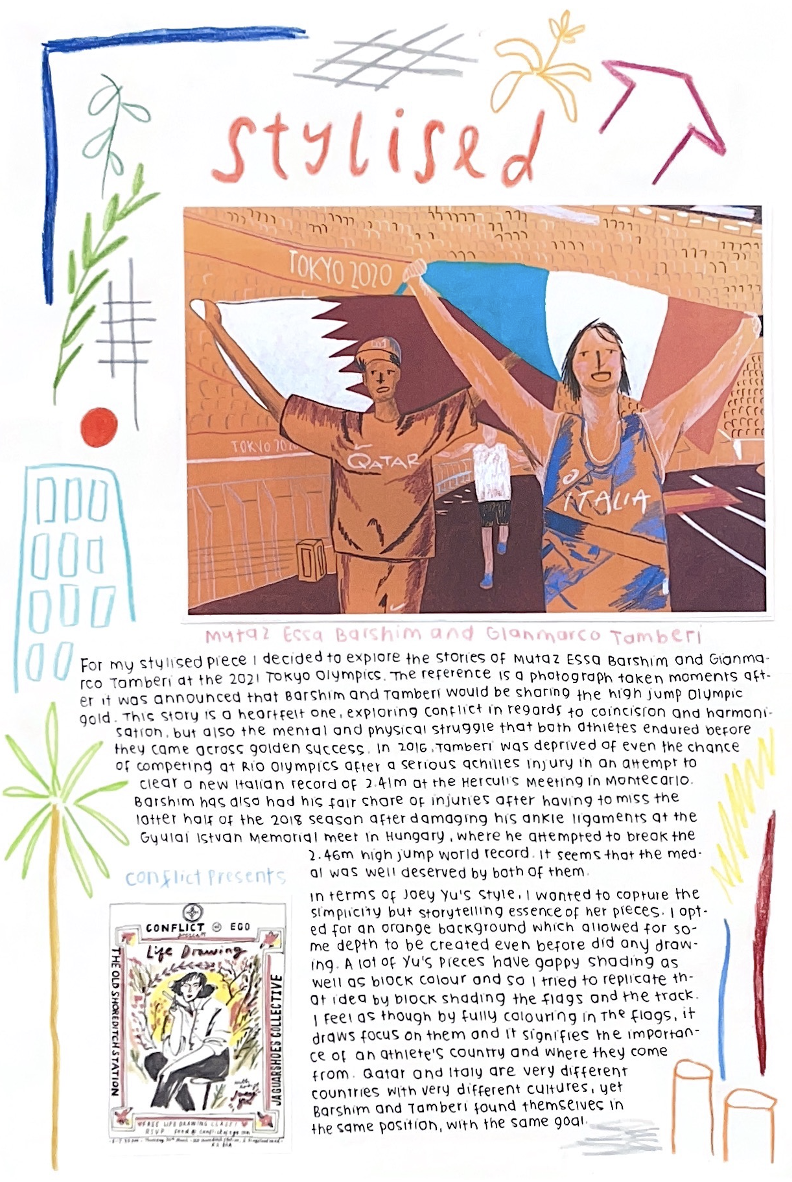 stylised
TOKYO 2020
TOKYO 20
QATAR
ITALIA
Mutaz Essa Barshim and Gianmarco Tamberi
For my stylised piece I decided to explore the stories of Mutaz Essa Barshim and Gianma-
rco Tamberi at the 2021 Tokyo Olympics. The reference is a photograph taken moments aft-
er it was announced that Barshim and Tamberi would be sharing the high jump Olympic
gold. This story is a heartfelt one, exploring conflict in regards to coincision and harmoni-
sation, but also the mental and physical struggle that both athletes endured before
they came across golden success. In 2016, Tamberi was deprived of even the chance
of competing at Rio Olympics after a serious achilles injury in an attempt to
clear a new Italian record of 2.41m at the Herculis Meeting in Montecarlo.
Barshim has also had his fair share of injuries after having to miss the
latter half of the 2018 season after damaging his ankle ligaments at the
Gyulai Istvan Memorial meet in Hungary, where he attempted to break the
2.46m high jump world record. It seems that the med-
al was well deserved by both of them.
conflict presents
In terms of Joey Yu's style, I wanted to capture the
simplicity but storytelling essence of her pieces. I opt-
ed for an orange background which allowed for so-
me depth to be created even before did any draw-
ing. A lot of Yu's pieces have gappy shading as
well as block colour and so I tried to replicate th-
at idea by block shading the flags and the track.
I feel as though by fully colouring in the flags, it
draws focus on them and it signifies the importan-
ce of an athlete's country and where they come
from. Qatar and Italy are very different
countries with very different cultures, yet
Barshim and Tamberi found themselves in
the same position, with the same goal.
CONFLICT EGO
Life Drawing
THE OLD SHOREDITCH STATION
JAGUARSHOES COLLECTIVE
FREE LIFE DRAWING CLASS!
RSVP